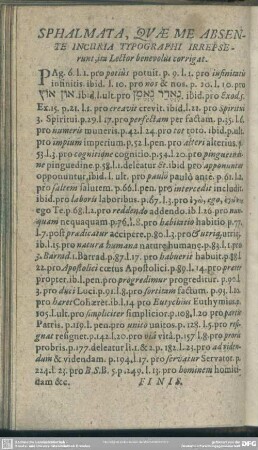 SPHALMATA, QVÆ ME ABSEN-
TE INCURIA TYPOGRAPHI IRREPSE-
runt, ita Lector benevolus corrigat.
PAg. 6. l. 1. pro potiùs potuit. p. 9. l. 1. pro infinitatis
infinitis. ibid. l. 10. pro nos & nos. p. 20. l. 10. pro
ibid. l. ult. pro ibid. pro Exod 5.
Ex. 15. p. 21. l. 5. pro creavit crevit. ibid. l. 21. pro Spiritu
3. Spiritui. p. 29. l. 17. pro perfectam per factam. p. 35. l. 6.
pro numeris muneris. p. 42. l. 24. pro tot toto. ibid. p. ult.
pro impium imperium. p. 52. l. pen. pro alteri alterius. p.
53. l. 3. pro cognitione cognitio. p. 54. l. 20. pro pinguetudi-
ne pinguedine. p. 58. l. 1. deleatur &c. ibid. pro apponuntur
opponuntur, ibid. l. ult. pro paulò paulò ante. p. 61. l. 2.
pro saltem salutem. p. 66. l. pen. pro intercedit includit.
ibid. pro laboris laboribus. p. 67. l. 3. pro
ego Te. p. 68. l. 1. pro reddendo addendo. ib. l. 20. pro nun-
quam nequaquam. p. 76. l. 8. pro habitatio habitio p. 77.
l. 7. post prædicatur accipere. p. 80. l. 3. pro
ib. l. 15. pro natura humana naturæ humanæ. p. 83. l. 1. pro
3. Barnad. 1. Barrad. p. 87. l. 17. pro habuerit habuit. p. 88. l.
22. pro Apostolici cœtus Apostolici. p. 89. l. 14. pro præter
propter. ib. l. pen. pro progredimur progreditur. p. 92. l.
3. pro duci Luci. p. 91. l. 8. pro sortitum factum. p. 93. l. 20.
pro hæret Cohæret. ib. l. 14. pro Eutychius Euthymius. p.
105. l. ult. pro simpliciter simplicior. p. 108. l. 20 pro partis
Patris. p. 119. l. pen. pro unico unitos. p. 128. l. 5. pro resi-
gnat resigner. p. 142. l. 20. pro viâ vitâ. p. 157. l. 8. pro pronis
probris. p. 177. deleatur li. 1. & 2. p. 182. l. 23. pro ad viden-
dum & videndam. p. 194. l. 17. pro servatur Servator. p.
224. l. 23. pro B.S.B. 5. p. 249. l. 13. pro hominem homin-
dam &c. FINIS.